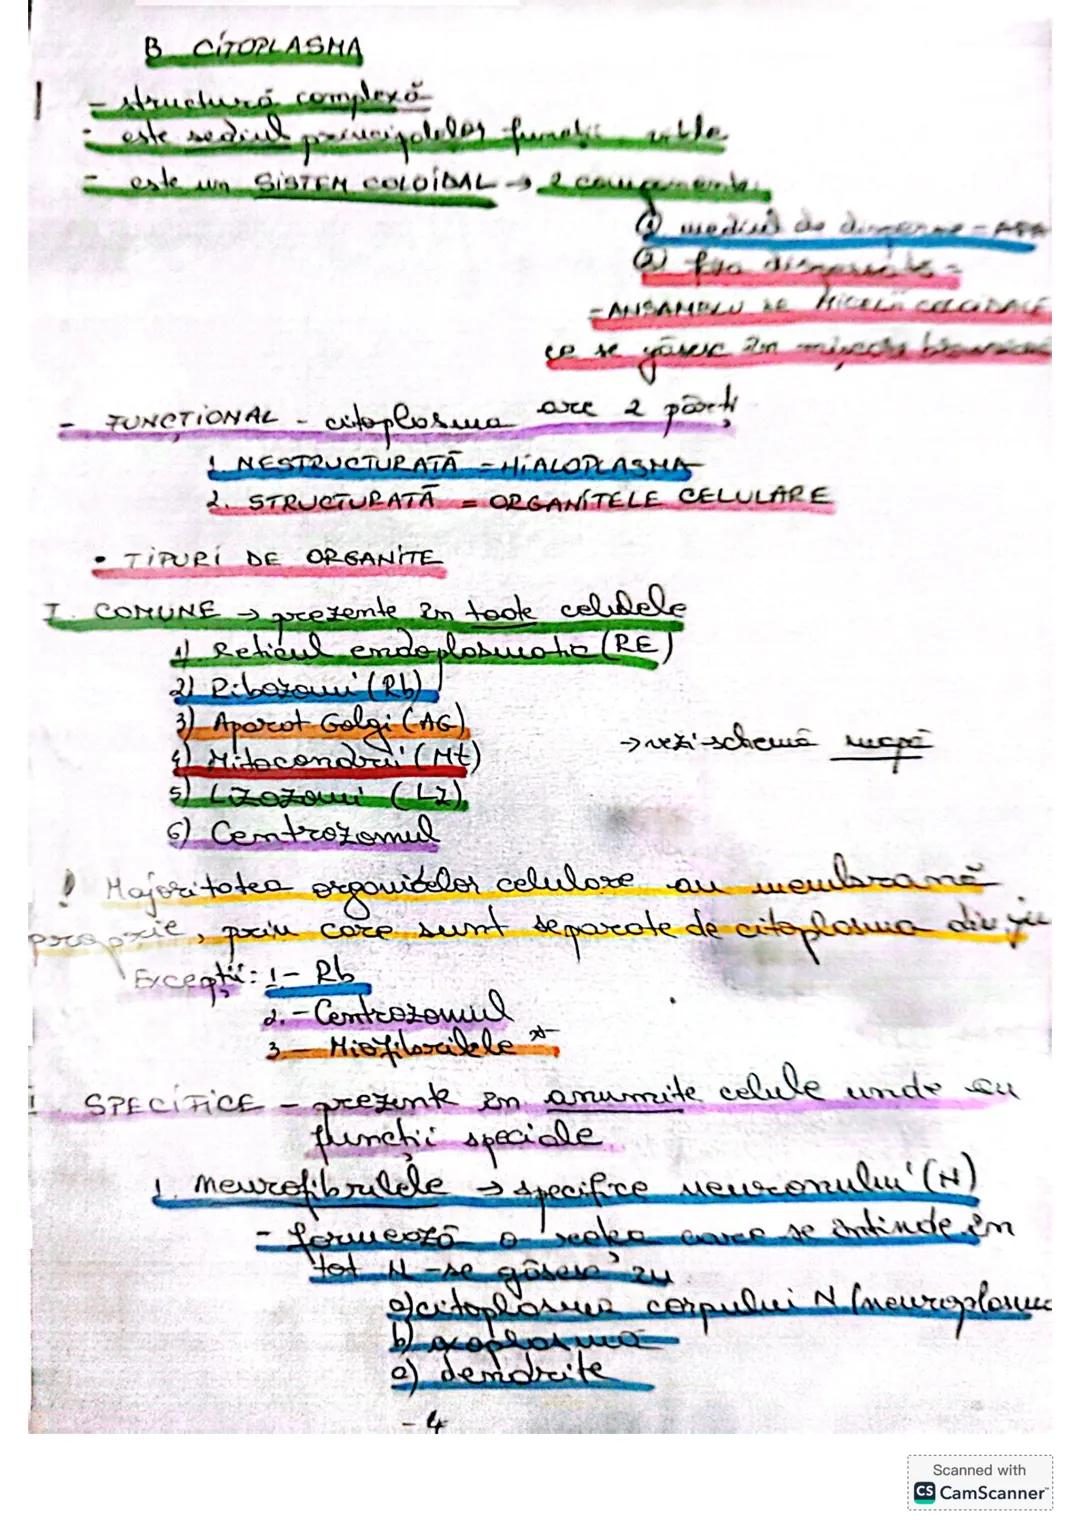 B CITOPLASMA
- structură complexă
- este sediul principalelor funcții vitale
- este un SISTEM COLOIDAL → 2 componente
① mediul de dispersie = APA
② faza dispersată =
= ANSAMBLU DE MICELII COLOIDALE
ce se găsesc în mișcare browniană
- FUNCȚIONAL - citoplasma are 2 părți
1. NESTRUCTURATĂ = HIALOPLASMA
2. STRUCTURATĂ = ORGANITELE CELULARE
• TIPURI DE ORGANITE
I. COMUNE → prezente în toate celulele
1) Reticul endoplasmatic (RE)
2) Ribozomi (Rb)
3) Aparat Golgi (AG)
4) Mitocondrii (Mt)
→ vezi schemă mapă
5) Lizozomi (Lz)
6) Centrozomul
! Majoritatea organitelor celulare au membrană
proprie, prin care sunt separate de citoplasma din ju
Excepții: 1 - Rb
2. - Centrozomul
3 - Miofibrilele *
SPECIFICE - prezente în anumite celule unde au
funcții speciale
1. neurofibrilele → specifice neuronului (N)
- formează o rețea care se întinde în
tot N - se găsesc în
a) citoplasma corpului N (neuroplasma
b) axoplasmă
c) dendrite
- 4
Scanned with
CS CamScanner